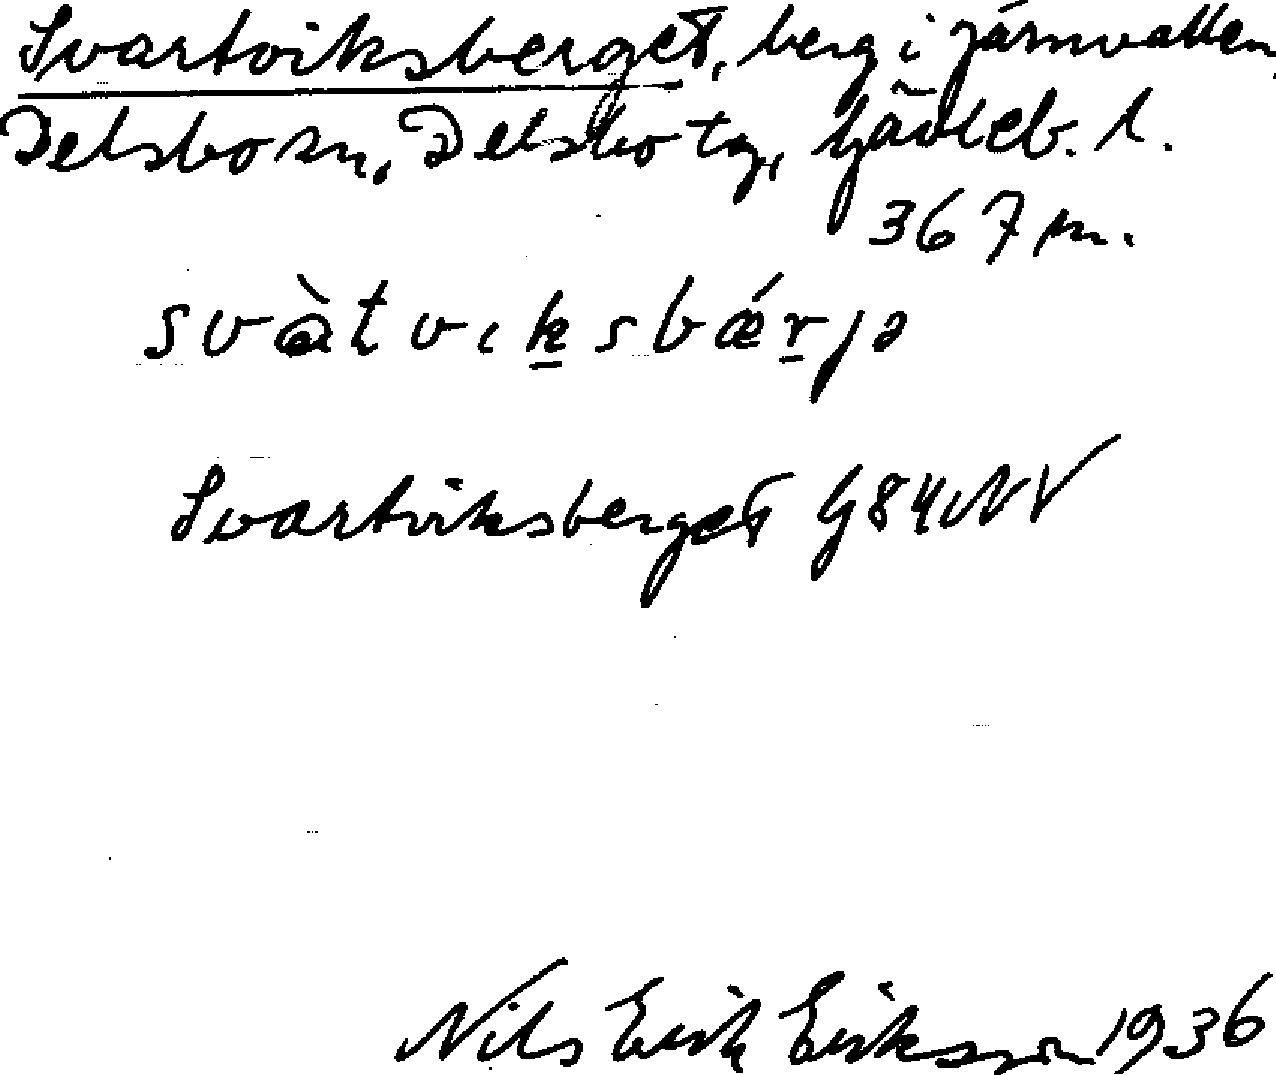 Svartviksberget, berg i Järnvallen
Delsbo sn, Delsbo tg, Gävleb. l.
367 m.
svàtvıksbǽrjə
Svartviksberget G84NV
Nils Erik Eriksson 1936